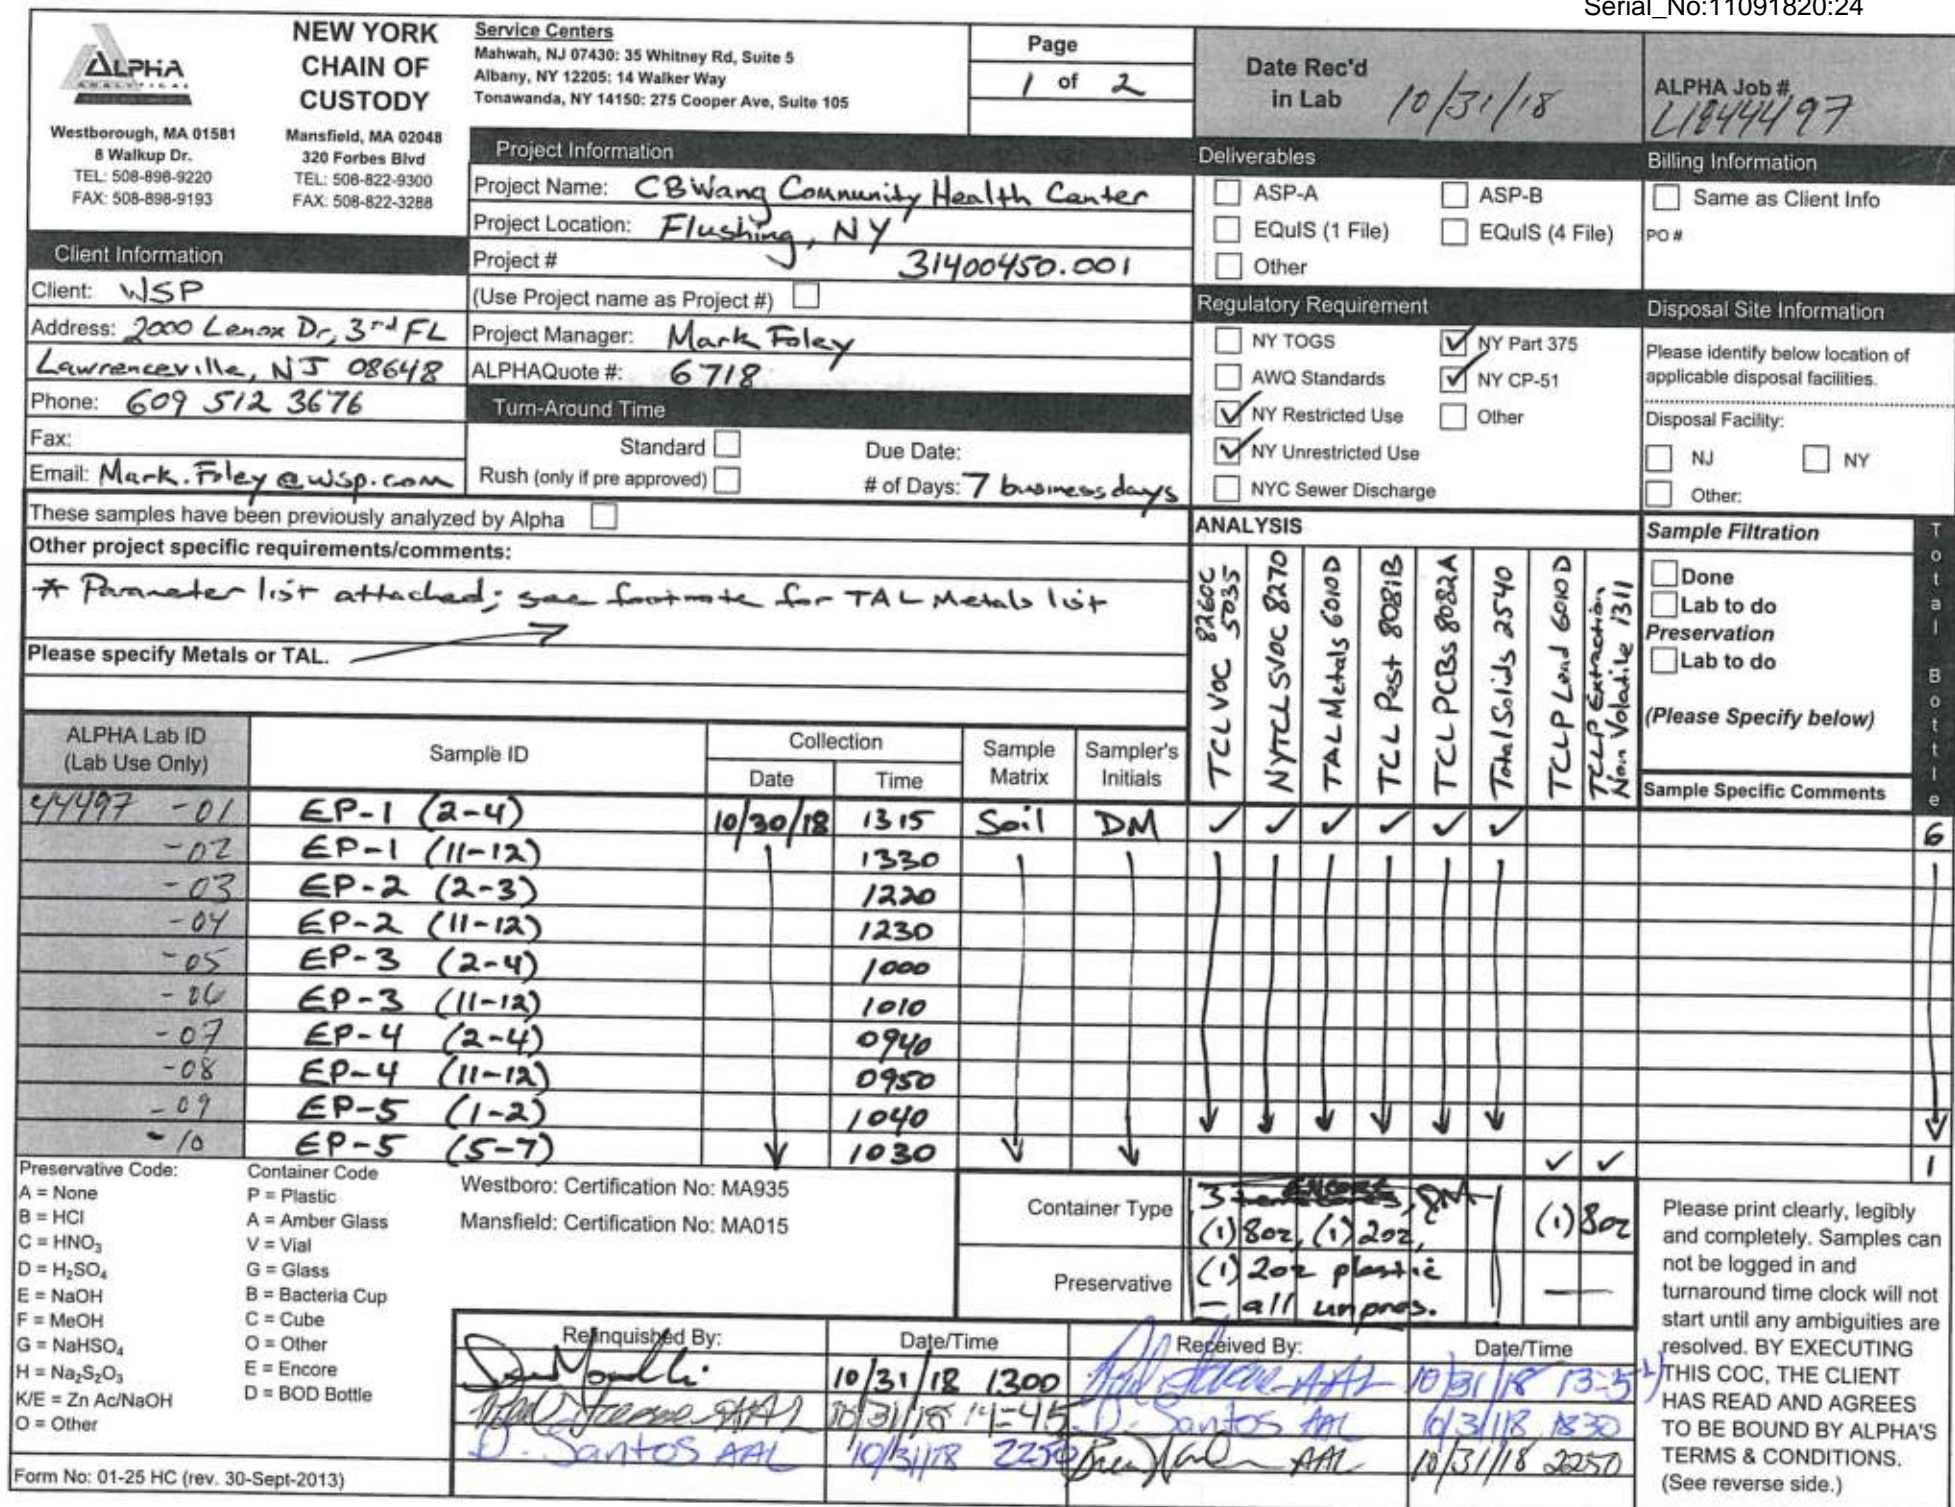 Serial_No:11091820:24
ALPHA
ANALYTICAL
NEW YORK
CHAIN OF
CUSTODY
Westborough, MA 01581
8 Walkup Dr.
TEL: 508-898-9220
FAX: 508-898-9193
Mansfield, MA 02048
320 Forbes Blvd
TEL: 508-822-9300
FAX: 508-822-3288
Service Centers
Mahwah, NJ 07430: 35 Whitney Rd, Suite 5
Albany, NY 12205: 14 Walker Way
Tonawanda, NY 14150: 275 Cooper Ave, Suite 105
Page
1 of 2
Date Rec'd
in Lab 10/31/18
ALPHA Job #
L1844497
Project Information
Project Name: CBWang Community Health Center
Project Location: Flushing, NY
Project # 31400450.001
(Use Project name as Project #)
Project Manager: Mark Foley
ALPHAQuote #: 6718
Client Information
Client: WSP
Address: 2000 Lenox Dr, 3rd FL
Lawrenceville, NJ 08648
Phone: 609 512 3676
Fax:
Email: Mark.Foley@wsp.com
Turn-Around Time
Standard Due Date:
Rush (only if pre approved) # of Days: 7 business days
Deliverables
ASP-A ASP-B
EQuIS (1 File) EQuIS (4 File)
Other
Regulatory Requirement
NY TOGS ✓ NY Part 375
AWQ Standards ✓ NY CP-51
✓ NY Restricted Use Other
✓ NY Unrestricted Use
NYC Sewer Discharge
Billing Information
Same as Client Info
PO #
Disposal Site Information
Please identify below location of
applicable disposal facilities.
Disposal Facility:
NJ NY
Other:
These samples have been previously analyzed by Alpha
Other project specific requirements/comments:
* Parameter list attached; see footnote for TAL Metals list
Please specify Metals or TAL.
ANALYSIS
TCL VOC 8260C 5035
NYTCL SVOC 8270
TAL Metals 6010D
TCL Pest 8081B
TCL PCBs 8082A
Total Solids 2540
TCLP Lead 6010D
TCLP Extraction, Non Volatile 1311
Sample Filtration
Done
Lab to do
Preservation
Lab to do
(Please Specify below)
Sample Specific Comments
Total Bottle
ALPHA Lab ID
(Lab Use Only)
Sample ID
Collection
Date Time
Sample
Matrix
Sampler's
Initials
44497 -01 EP-1 (2-4) 10/30/18 1315 Soil DM ✓ ✓ ✓ ✓ ✓ ✓ 6
-02 EP-1 (11-12) 1330
-03 EP-2 (2-3) 1220
-04 EP-2 (11-12) 1230
-05 EP-3 (2-4) 1000
-06 EP-3 (11-12) 1010
-07 EP-4 (2-4) 0940
-08 EP-4 (11-12) 0950
-09 EP-5 (1-2) 1040
-10 EP-5 (5-7) 1030 ✓ ✓ 1
Preservative Code:
A = None
B = HCl
C = HNO₃
D = H₂SO₄
E = NaOH
F = MeOH
G = NaHSO₄
H = Na₂S₂O₃
K/E = Zn Ac/NaOH
O = Other
Container Code
P = Plastic
A = Amber Glass
V = Vial
G = Glass
B = Bacteria Cup
C = Cube
O = Other
E = Encore
D = BOD Bottle
Westboro: Certification No: MA935
Mansfield: Certification No: MA015
Container Type
3 ENCORE, DM
(1) 8oz, (1) 2oz, (1) 8oz
Preservative
(1) 2oz plastic
- all unpres. —
Relinquished By: Date/Time Received By: Date/Time
10/31/18 1300 AAL 10/31/18
10/31/18 D. Santos AAL 10/31/18 1830
D. Santos AAL 10/31/18 2250 AAL 10/31/18 2250
Please print clearly, legibly
and completely. Samples can
not be logged in and
turnaround time clock will not
start until any ambiguities are
resolved. BY EXECUTING
THIS COC, THE CLIENT
HAS READ AND AGREES
TO BE BOUND BY ALPHA'S
TERMS & CONDITIONS.
(See reverse side.)
Form No: 01-25 HC (rev. 30-Sept-2013)